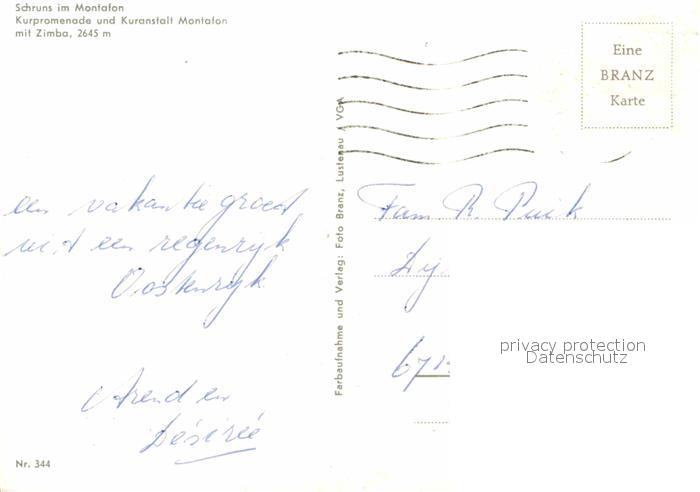 Schruns im Montafon
Kurpromenade und Kuranstalt Montafon
mit Zimba, 2645 m
Eine
BRANZ
Karte
Farbaufnahme und Verlag: Foto Branz, Lustenau / VGA
een vakantie groet
uit een regenryk
Oostenryk
Arend en
Désirée
Fam. R. Puik
privacy protection
Datenschutz
Nr. 344